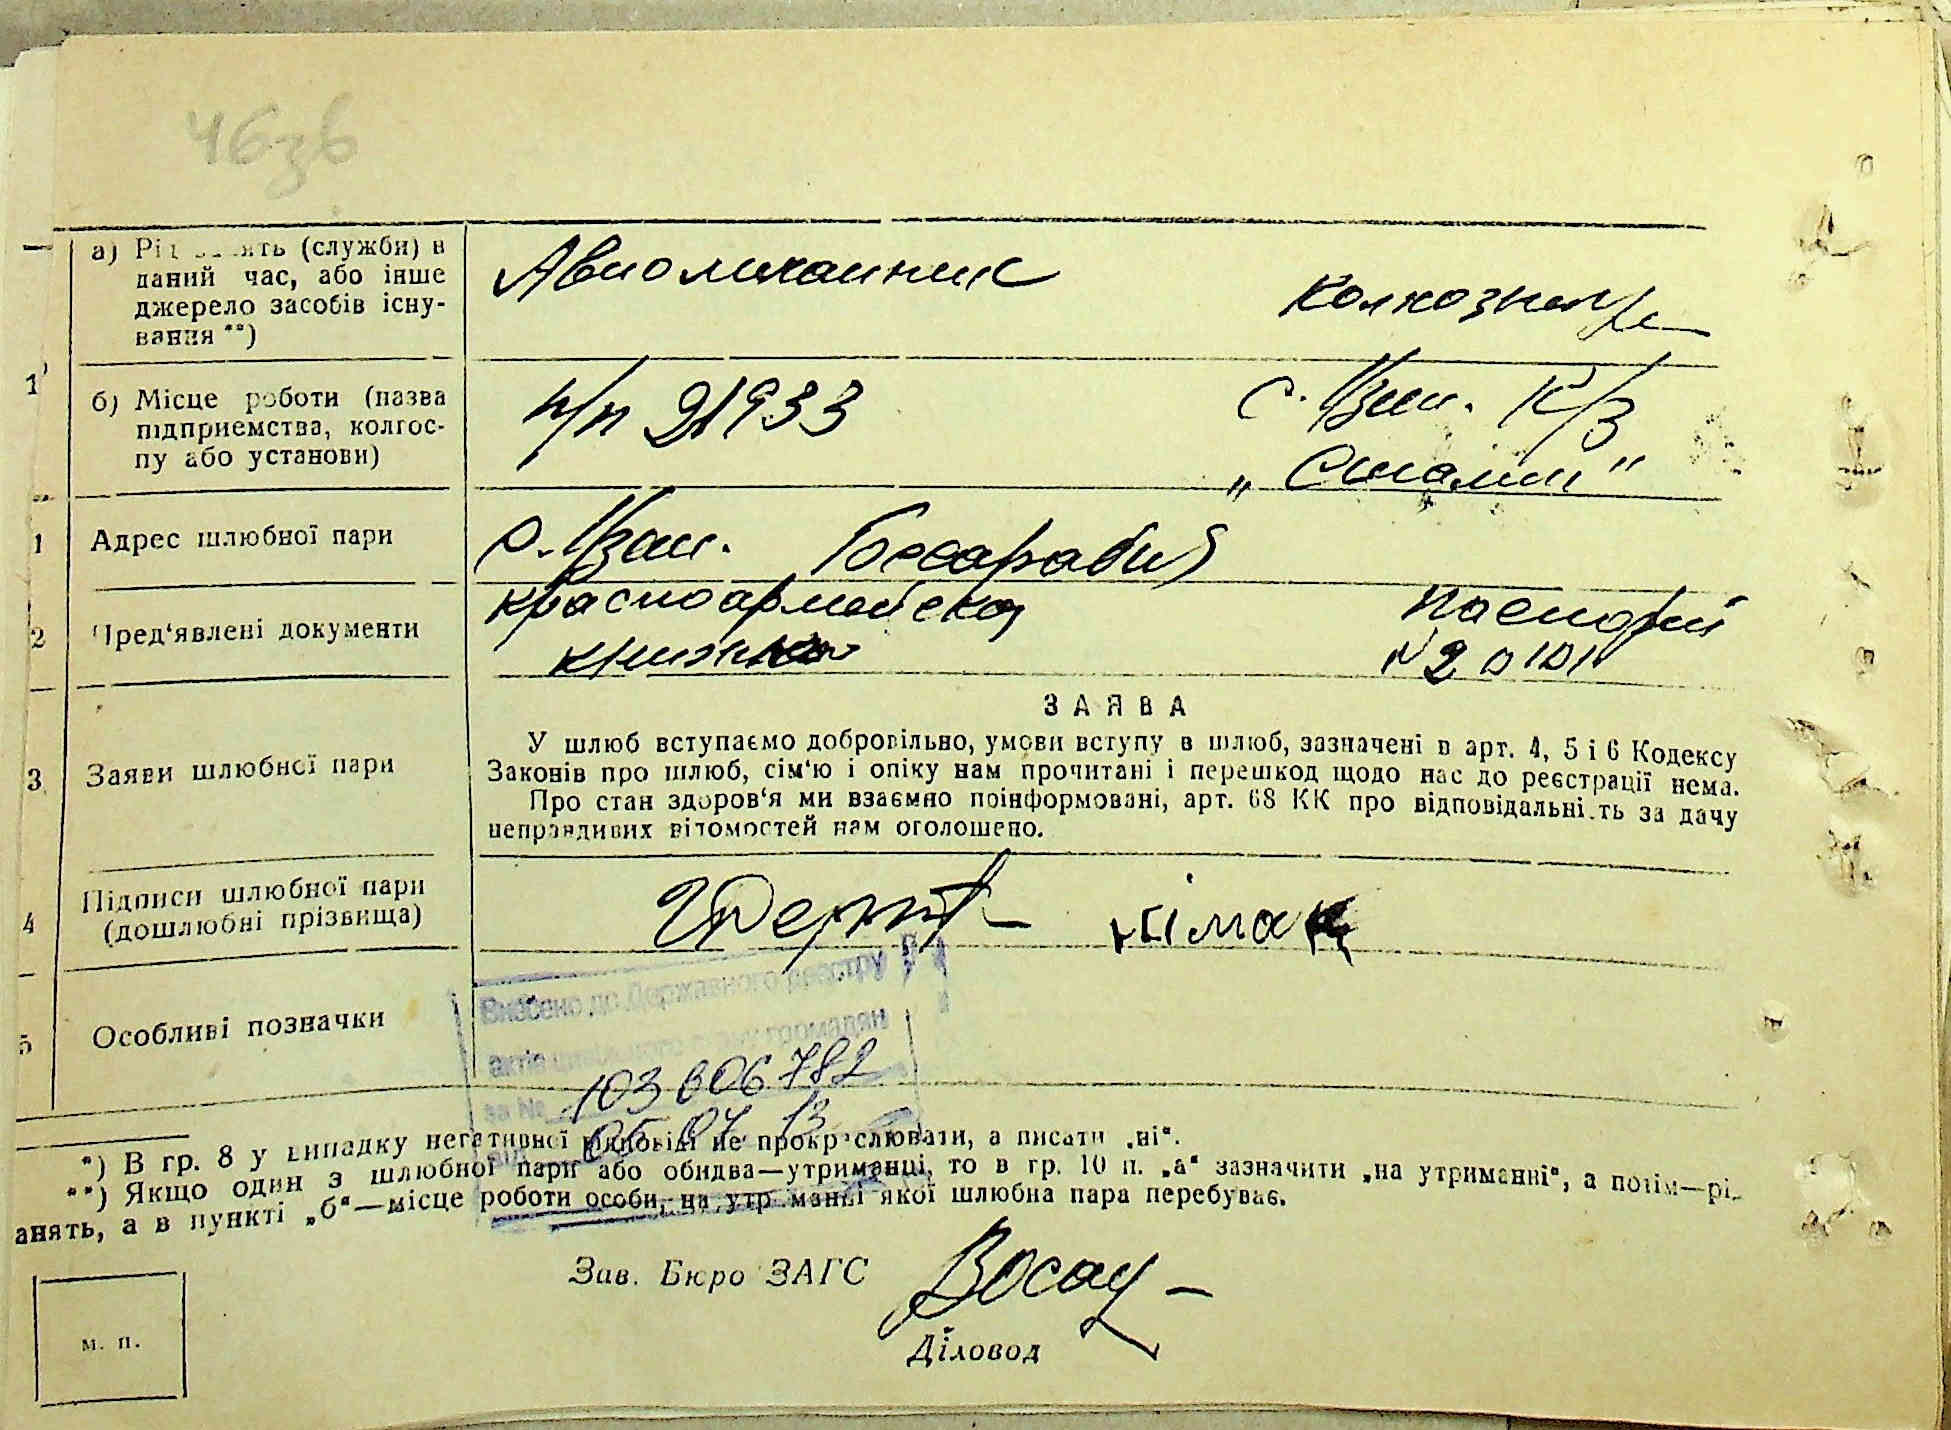 46зв
а) Рід занять (служби) в
даний час, або інше
джерело засобів існу-
вання **)
Авиомеханник
Колхознеця
1
б) Місце роботи (назва
підприємства, колгос-
пу або установи)
п/п 21933
с. К/З
„Сталин"
1 Адрес шлюбної пари
Бесарабия
2 Пред'явлені документи
красноармейская
книжка
Паспорт
3 Заяви шлюбної пари
ЗАЯВА
У шлюб вступаємо добровільно, умови вступу в шлюб, зазначені в арт. 4, 5 і 6 Кодексу
Законів про шлюб, сім'ю і опіку нам прочитані і перешкод щодо нас до реєстрації нема.
Про стан здоров'я ми взаємно поінформовані, арт. 68 КК про відповідальність за дачу
неправдивих відомостей нам оголошено.
4 Підписи шлюбної пари
(дошлюбні прізвища)
5 Особливі позначки
Внесено до Державного реєстру
актів цивільного стану громадян
за № 103006782
05 07 13
*) В гр. 8 у випадку негативної відповіді не прокреслювати, а писати „ні".
**) Якщо один з шлюбної пари або обидва—утриманці, то в гр. 10 п. „а" зазначити „на утриманні", а потім—рі
анять, а в пункті „б"—місце роботи особи, на утриманні якої шлюбна пара перебуває.
Зав. Бюро ЗАГС
Діловод
м. п.